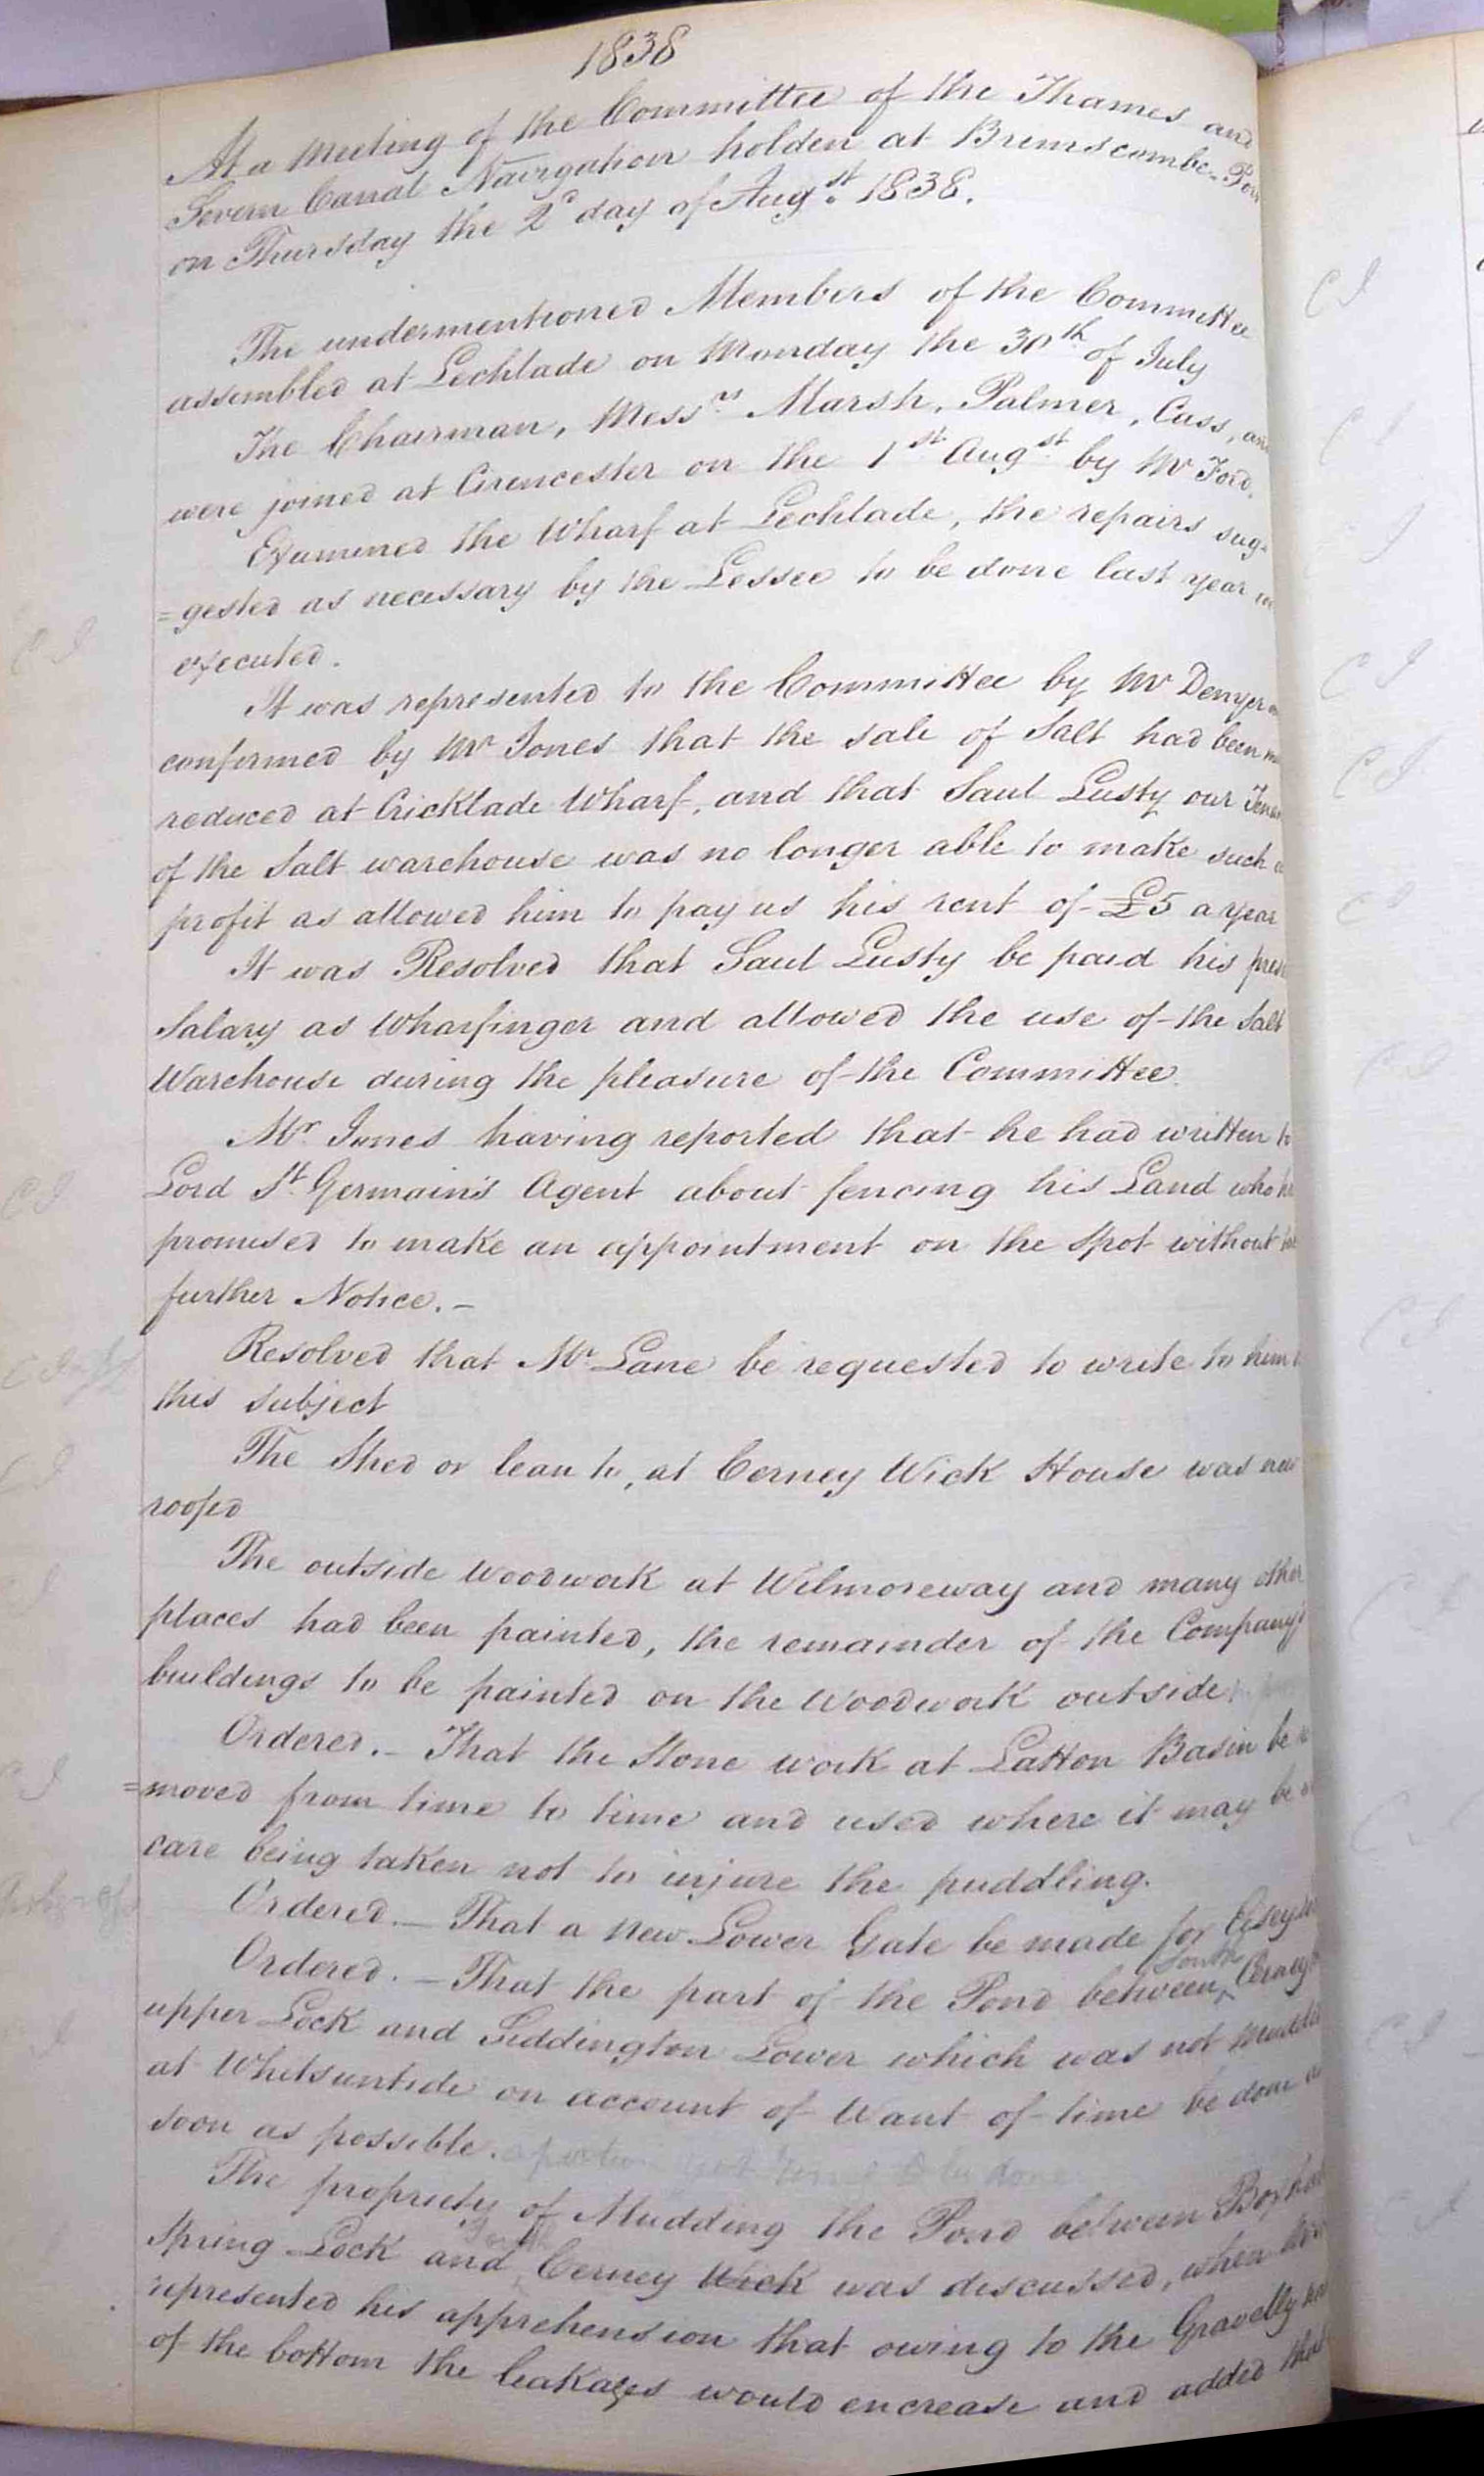 1838
At a Meeting of the Committee of the Thames and
Severn Canal Navigation holden at Brimscombe Port
on Thursday the 2d day of Augst. 1838.
The undermentioned Members of the Committee
assembled at Lechlade on Monday the 30th of July
The Chairman, Messrs. Marsh, Palmer, Cass, and
were joined at Cirencester on the 1st Augst. by Mr Ford.
Examined the Wharf at Lechlade, the repairs sug-
=gested as necessary by the Lessee to be done last year
executed.
It was represented to the Committee by Mr Denyer
confirmed by Mr Jones that the sale of Salt had been
reduced at Cricklade Wharf, and that Saul Lusty our
of the Salt warehouse was no longer able to make such a
profit as allowed him to pay us his rent of £5 a year
It was Resolved that Saul Lusty be paid his
Salary as Wharfinger and allowed the use of the Salt
Warehouse during the pleasure of the Committee.
Mr. Jones having reported that he had written to
Lord St. Germain's Agent about fencing his Land who
promised to make an appointment on the Spot without
further Notice. -
Resolved that Mr Lane be requested to write to him
this subject
The Shed or lean to, at Cerney Wick House was new
roofed
The outside Woodwork at Wilmoreway and many other
places had been painted, the remainder of the Company's
buildings to be painted on the Woodwork outside
Ordered. - That the Stone work at Latton Basin be
=moved from time to time and used where it may be
care being taken not to injure the puddling.
Ordered. - That a new Lower Gate be made for
Ordered. - That the part of the Pond between South Cerney
upper Lock and Siddington Lower which was not
at Whitsuntide on account of Want of time be done as
soon as possible.
The propriety of Mudding the Pond between
Spring Lock and South Cerney Wick was discussed, when
represented his apprehension that owing to the Gravelly
of the bottom the leakages would encrease and added that